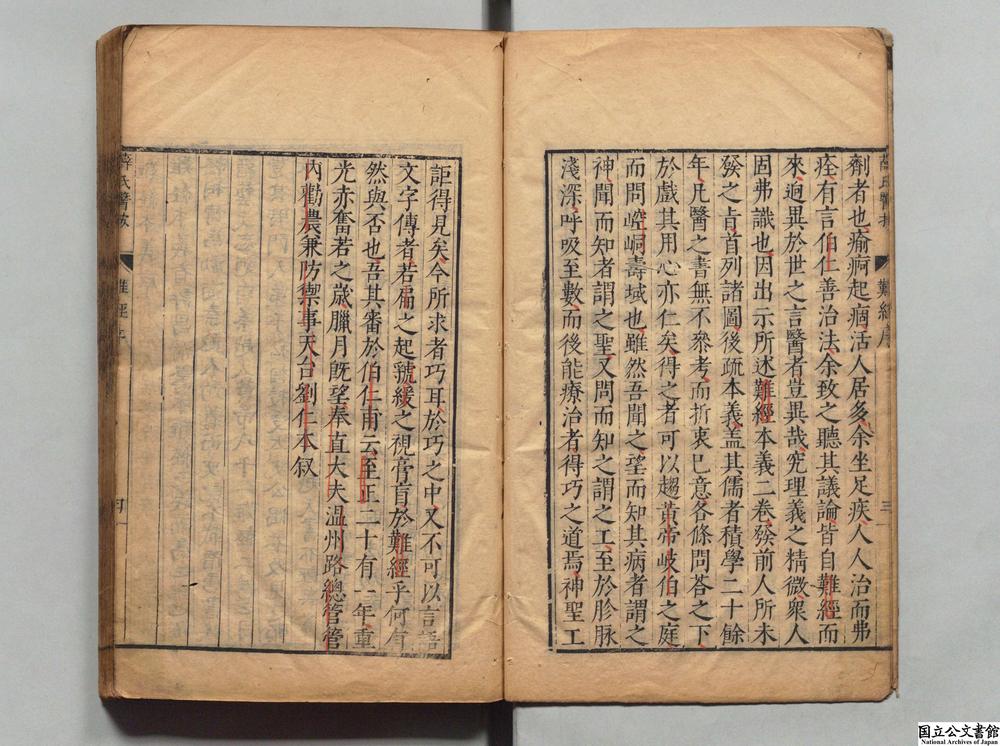 薛氏醫按 難經序 三
劑者也瘉痾起痼活人居多余坐足疾人人治而弗
痊有言伯仁善治法余致之聽其議論皆自難經而
來迥異於世之言醫者豈異哉究理義之精微衆人
固弗識也因出示所述難經本義二卷發前人所未
發之㫖首列諸圖後疏本義盖其儒者積學二十餘
年凡醫之書無不參考而折衷已意各條問荅之下
於戲其用心亦仁矣得之者可以趨黃帝岐伯之庭
而問崆峒壽域也雖然吾聞之望而知其病者謂之
神聞而知者謂之聖又問而知之謂之工至於胗脉
淺深呼吸至數而後能療治者得巧之道焉神聖工
詎得見矣今所求者巧耳於巧之中又不可以言語
文字傳者若扁之起虢緩之視膏肓於難經乎何有
然與否也吾其審於伯仁甫云至正二十有一年重
光赤奮若之歲臘月旣望奉直大夫溫州路總管管
内勸農兼防禦事天台劉仁本叙
薛氏醫按 難經序
国立公文書館
National Archives of Japan